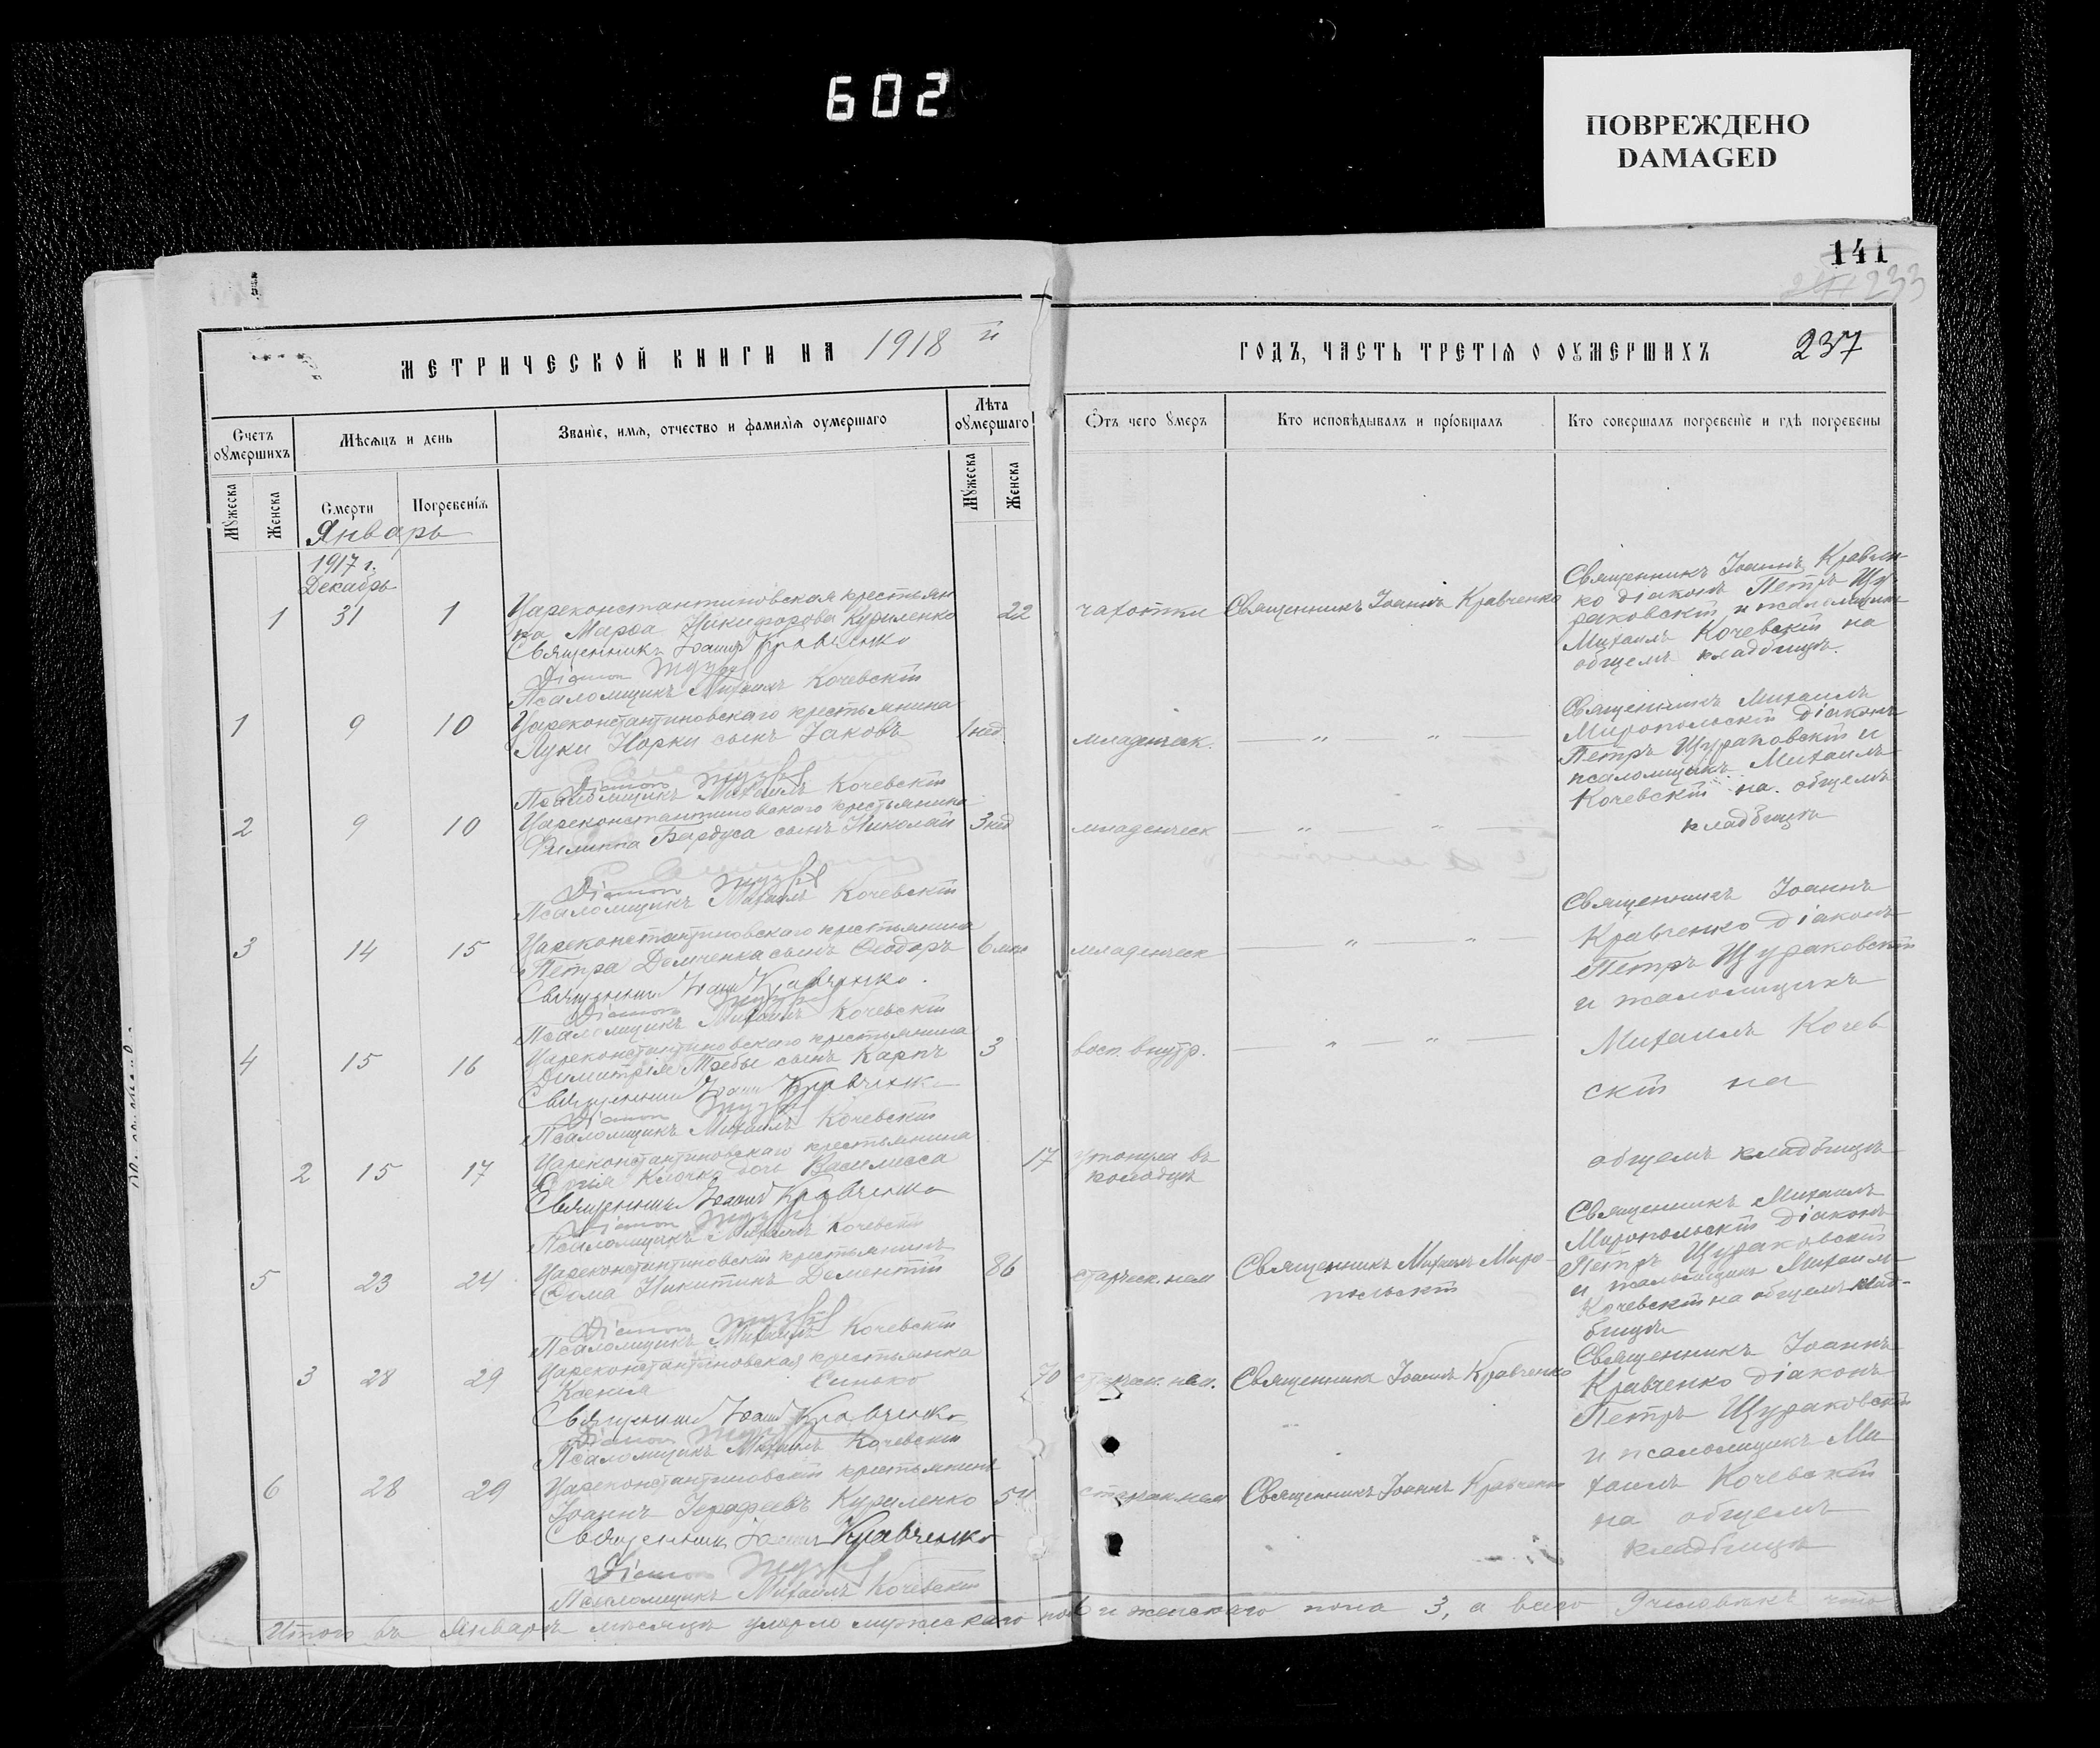 602
ПОВРЕЖДЕНО
DAMAGED
141
233
МЕТРИЧЕСКОЙ КНИГИ НА 1918 й
ГОДЪ, ЧАСТЬ ТРЕТІЯ О ОУМЕРШИХЪ 237
Счетъ оумершихъ
Мѣсяцъ и день
Званіе, имя, отчество и фамилія оумершаго
Лѣта оумершаго
Отъ чего умеръ
Кто исповѣдывалъ и пріобщалъ
Кто совершалъ погребеніе и гдѣ погребены
Мужеска
Женска
Смерти
Погребенія
Мужеска
Женска
Январь
1917 г.
Декабрь
1 31 1
Цареконстантиновская крестьян
ка Марѳа Никифорова Куриленко
22 чахотки Священникъ Іоаннъ Кравченко
Священникъ Іоаннъ Кравченко
Діаконъ
Псаломщикъ Михаилъ Кочевскій
Священникъ Іоаннъ Кравчен
ко діаконъ Петръ Щу
раковскій и псаломщикъ
Михаилъ Кочевскій на
общемъ кладбищѣ.
1 9 10
Цареконстантиновскаго крестьянина
Луки Норки сынъ Іаковъ
1 нед. младенческ. — " — " —
Діаконъ
Псаломщикъ Михаилъ Кочевскій
Священникъ Михаилъ
Миропольскій діаконъ
Петръ Щураковскій и
псаломщикъ Михаилъ
Кочевскій на общемъ
кладбищѣ
2 9 10
Цареконстантиновскаго крестьянина
Филиппа Бардуса сынъ Николай
3 нед младенческ — " — " —
Діаконъ
Псаломщикъ Михаилъ Кочевскій
3 14 15
Цареконстантиновскаго крестьянина
Петра Демченка сынъ Ѳеодоръ
6 мѣс младенческ — " — " —
Священникъ Іоаннъ Кравченко.
Діаконъ
Псаломщикъ Михаилъ Кочевскій
Священникъ Іоаннъ
Кравченко діаконъ
Петръ Щураковскій
и псаломщикъ
Михаилъ Кочев
скій на
общемъ кладбищѣ
4 15 16
Цареконстантиновскаго крестьянина
Димитрія Требы сынъ Карпъ
3 восп. внутр. — " — " —
Священникъ Іоаннъ Кравченко
Діаконъ
Псаломщикъ Михаилъ Кочевскій
2 15 17
Цареконстантиновскаго крестьянина
Клочко дочь Василисса
17 утонула въ
колодцѣ
Священникъ Іоаннъ Кравченко
Діаконъ
Псаломщикъ Михаилъ Кочевскій
5 23 24
Цареконстантиновскій крестьянинъ
Ѳома Никитинъ Дементій
86 старческ. нем Священникъ Михаилъ Миро-
польскій
Діаконъ
Псаломщикъ Михаилъ Кочевскій
Священникъ Михаилъ
Миропольскій діаконъ
Петръ Щураковскій
и псаломщикъ Михаилъ
Кочевскій на общемъ клад-
бищѣ
3 28 29
Цареконстантиновская крестьянка
Ксенія Синько
70 нем. Священникъ Іоаннъ Кравченко
Священникъ Іоаннъ Кравченко
Діаконъ
Псаломщикъ Михаилъ Кочевскій
Священникъ Іоаннъ
Кравченко діаконъ
Петръ Щураковскій
и псаломщикъ Ми
хаилъ Кочевскій
на общемъ
кладбищѣ
6 28 29
Цареконстантиновскій крестьянинъ
Іоаннъ Іерофеевъ Куриленко
Священникъ Іоаннъ Кравченко
Священникъ Іоаннъ Кравченко
Діаконъ
Псаломщикъ Михаилъ Кочевскій
Итого въ Январѣ мѣсяцѣ умерло мужескаго пола 6 и женскаго пола 3, а всего 9 человѣкъ что